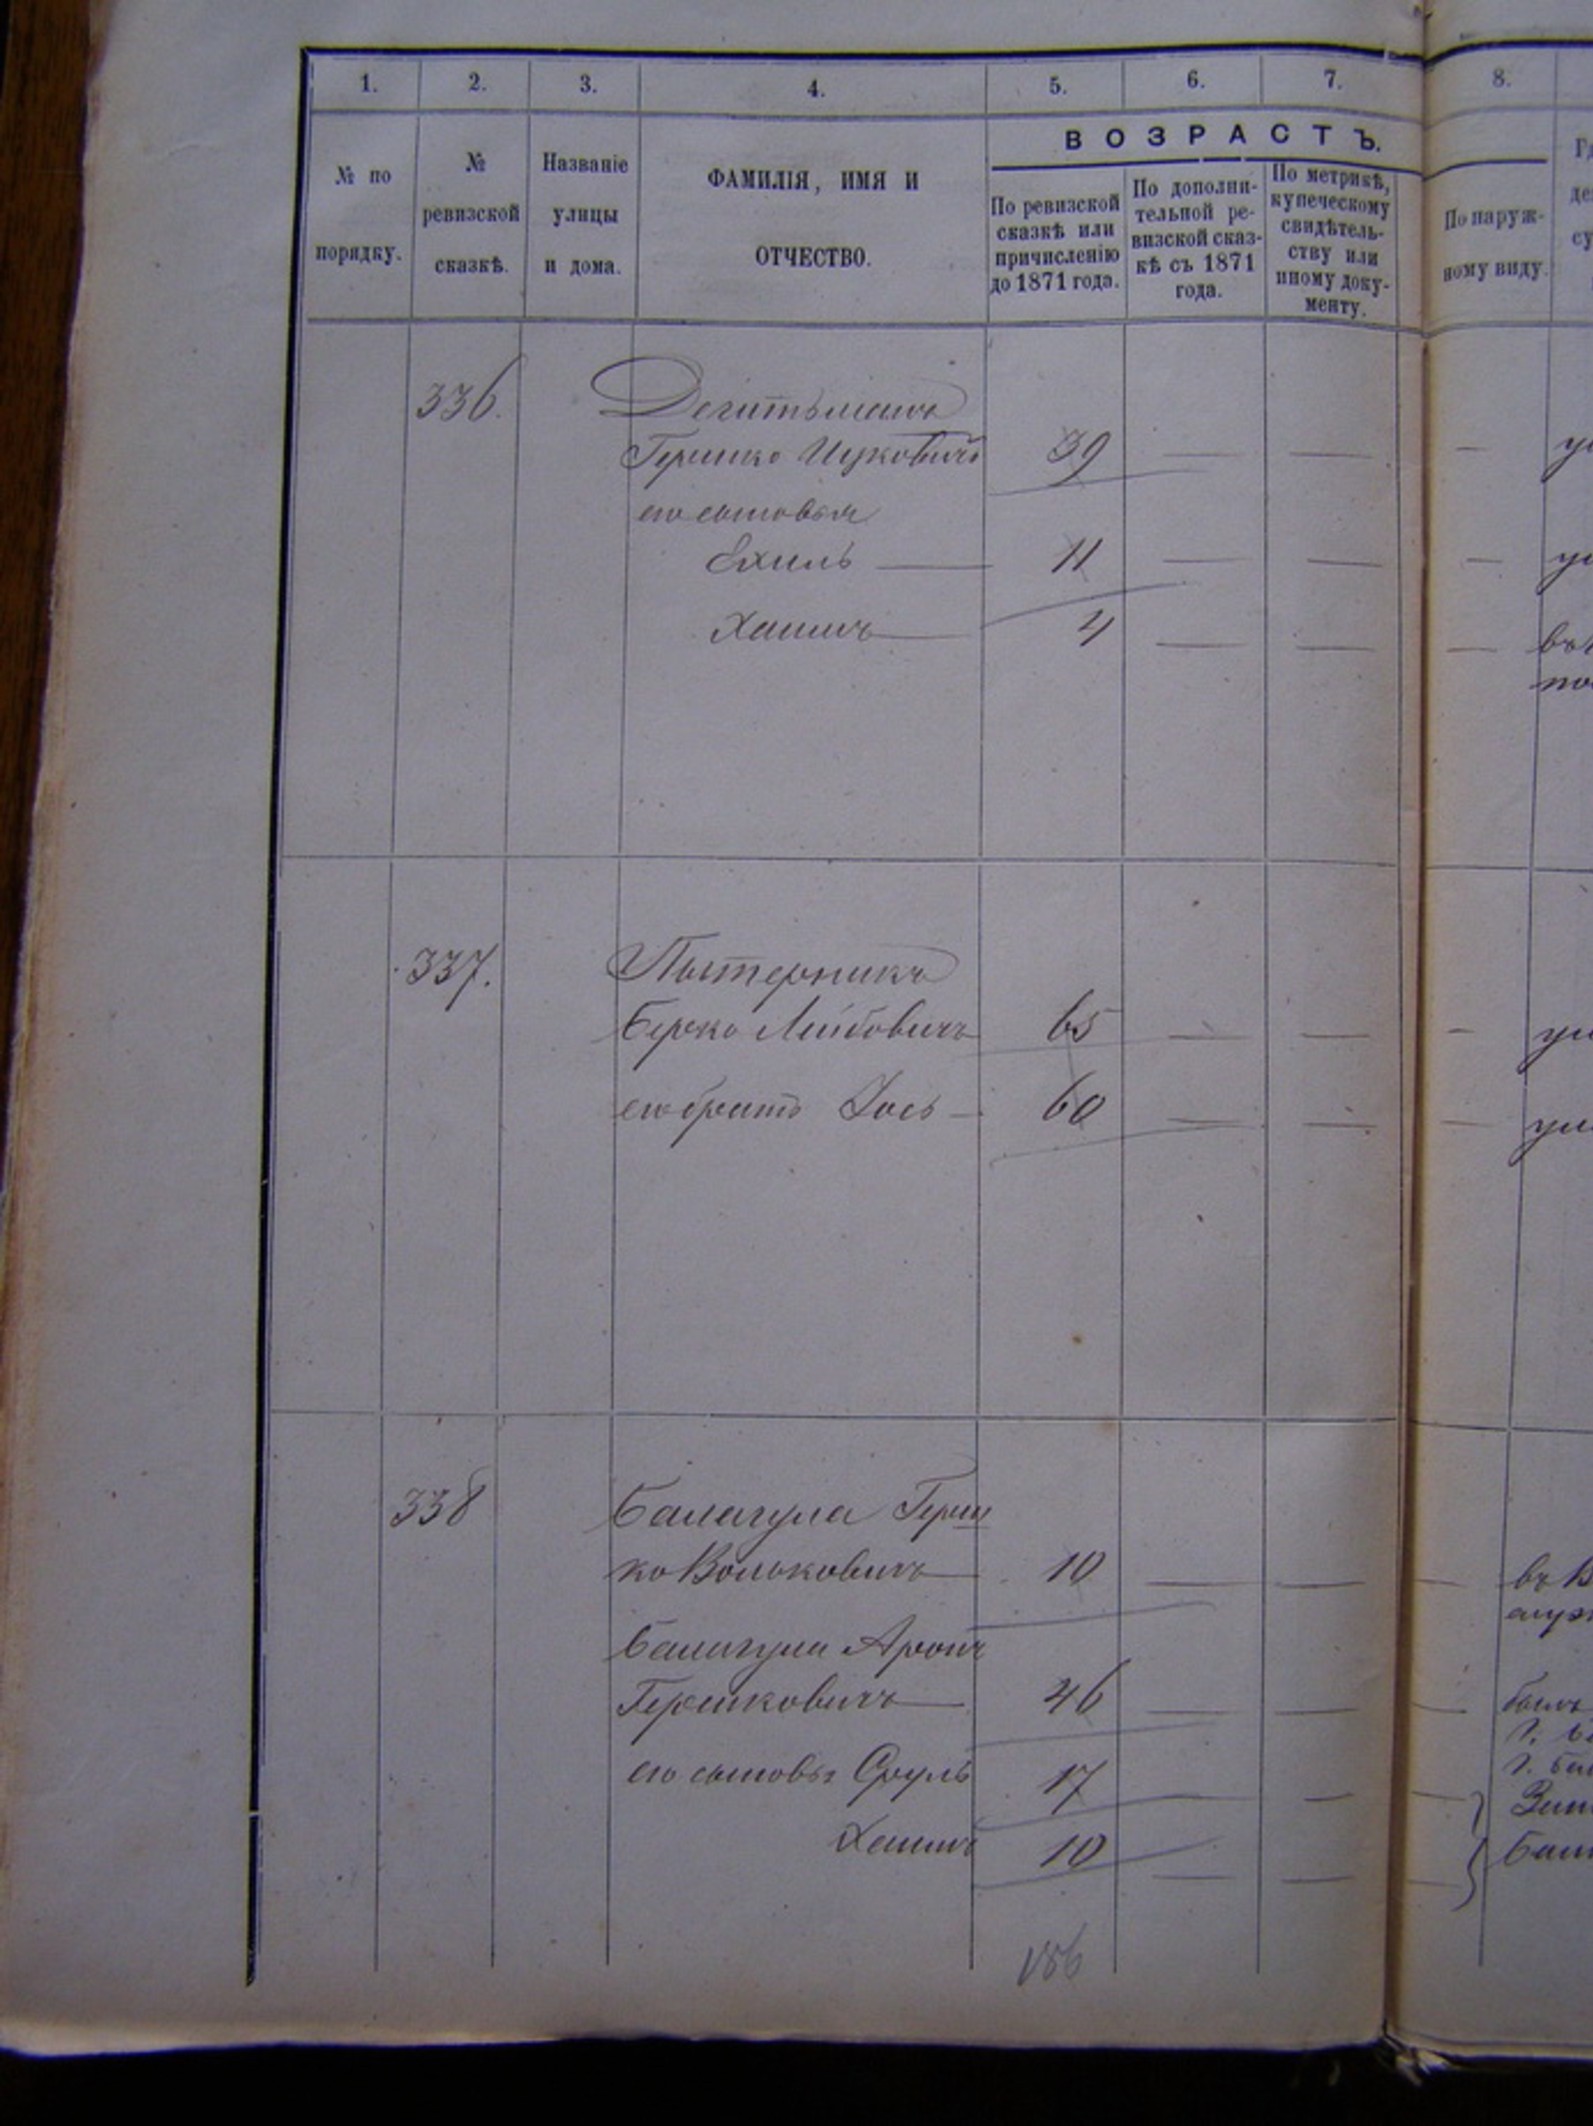 1. 2. 3. 4. 5. 6. 7. 8.
№ по порядку.
№ ревизской сказкѣ.
Названіе улицы и дома.
ФАМИЛІЯ, ИМЯ И ОТЧЕСТВО.
ВОЗРАСТЪ.
По ревизской сказкѣ или причисленію до 1871 года.
По дополнительной ревизской сказкѣ съ 1871 года.
По метрикѣ, купеческому свидѣтельству или иному документу.
По наружному виду.
336.
Гершко Ицковичъ 39 — — —
его сыновья
Ехиль — 11 — — —
Хаимъ — 4 — — —
337.
Пытерникъ
Берко Лейбовичъ 65 — — —
его братъ Іось — 60 — — —
338
Балагула Герш
ко Вольковичъ — 10 — — —
Балагула Аронъ
Гершковичъ — 46 — — —
его сыновья Сруль 17 — —
Хаимъ 10 — — —
186